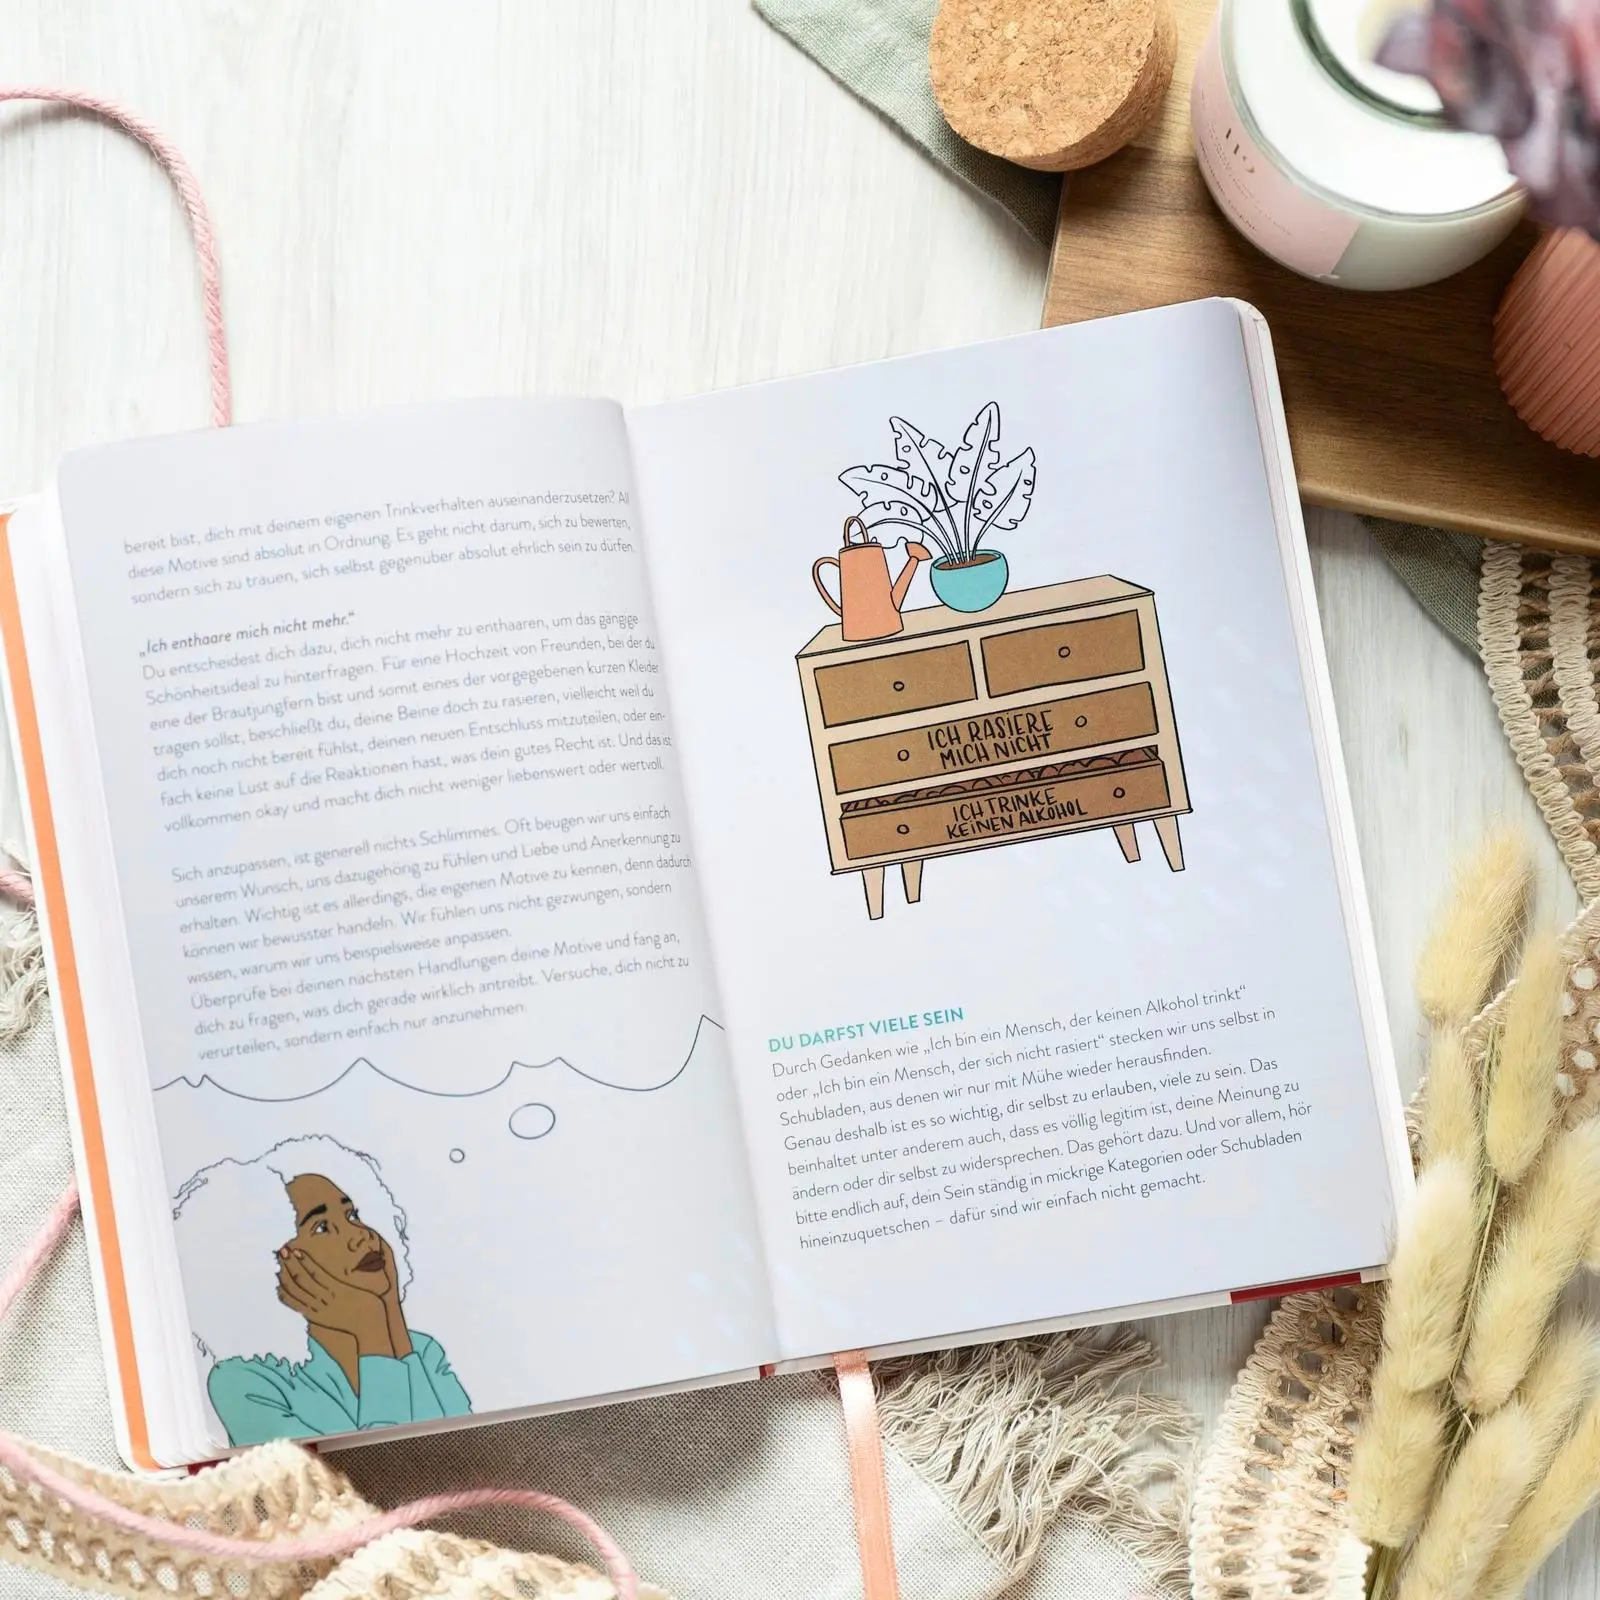 bereit bist, dich mit deinem eigenen Trinkverhalten auseinanderzusetzen? All
diese Motive sind absolut in Ordnung. Es geht nicht darum, sich zu bewerten,
sondern sich zu trauen, sich selbst gegenüber absolut ehrlich sein zu dürfen.
„Ich enthaare mich nicht mehr.“
Du entscheidest dich dazu, dich nicht mehr zu enthaaren, um das gängige
Schönheitsideal zu hinterfragen. Für eine Hochzeit von Freunden, bei der du
eine der Brautjungfern bist und somit eines der vorgegebenen kurzen Kleider
tragen sollst, beschließt du, deine Beine doch zu rasieren, vielleicht weil du
dich noch nicht bereit fühlst, deinen neuen Entschluss mitzuteilen, oder ein-
fach keine Lust auf die Reaktionen hast, was dein gutes Recht ist. Und das ist
vollkommen okay und macht dich nicht weniger liebenswert oder wertvoll.
Sich anzupassen, ist generell nichts Schlimmes. Oft beugen wir uns einfach
unserem Wunsch, uns dazugehörig zu fühlen und Liebe und Anerkennung zu
erhalten. Wichtig ist es allerdings, die eigenen Motive zu kennen, denn dadurch
können wir bewusster handeln. Wir fühlen uns nicht gezwungen, sondern
wissen, warum wir uns beispielsweise anpassen.
Überprüfe bei deinen nächsten Handlungen deine Motive und fang an,
dich zu fragen, was dich gerade wirklich antreibt. Versuche, dich nicht zu
verurteilen, sondern einfach nur anzunehmen.
ICH RASIERE
MICH NICHT
ICH TRINKE
KEINEN ALKOHOL
DU DARFST VIELE SEIN
Durch Gedanken wie „Ich bin ein Mensch, der keinen Alkohol trinkt“
oder „Ich bin ein Mensch, der sich nicht rasiert“ stecken wir uns selbst in
Schubladen, aus denen wir nur mit Mühe wieder herausfinden.
Genau deshalb ist es so wichtig, dir selbst zu erlauben, viele zu sein. Das
beinhaltet unter anderem auch, dass es völlig legitim ist, deine Meinung zu
ändern oder dir selbst zu widersprechen. Das gehört dazu. Und vor allem, hör
bitte endlich auf, dein Sein ständig in mickrige Kategorien oder Schubladen
hineinzuquetschen – dafür sind wir einfach nicht gemacht.